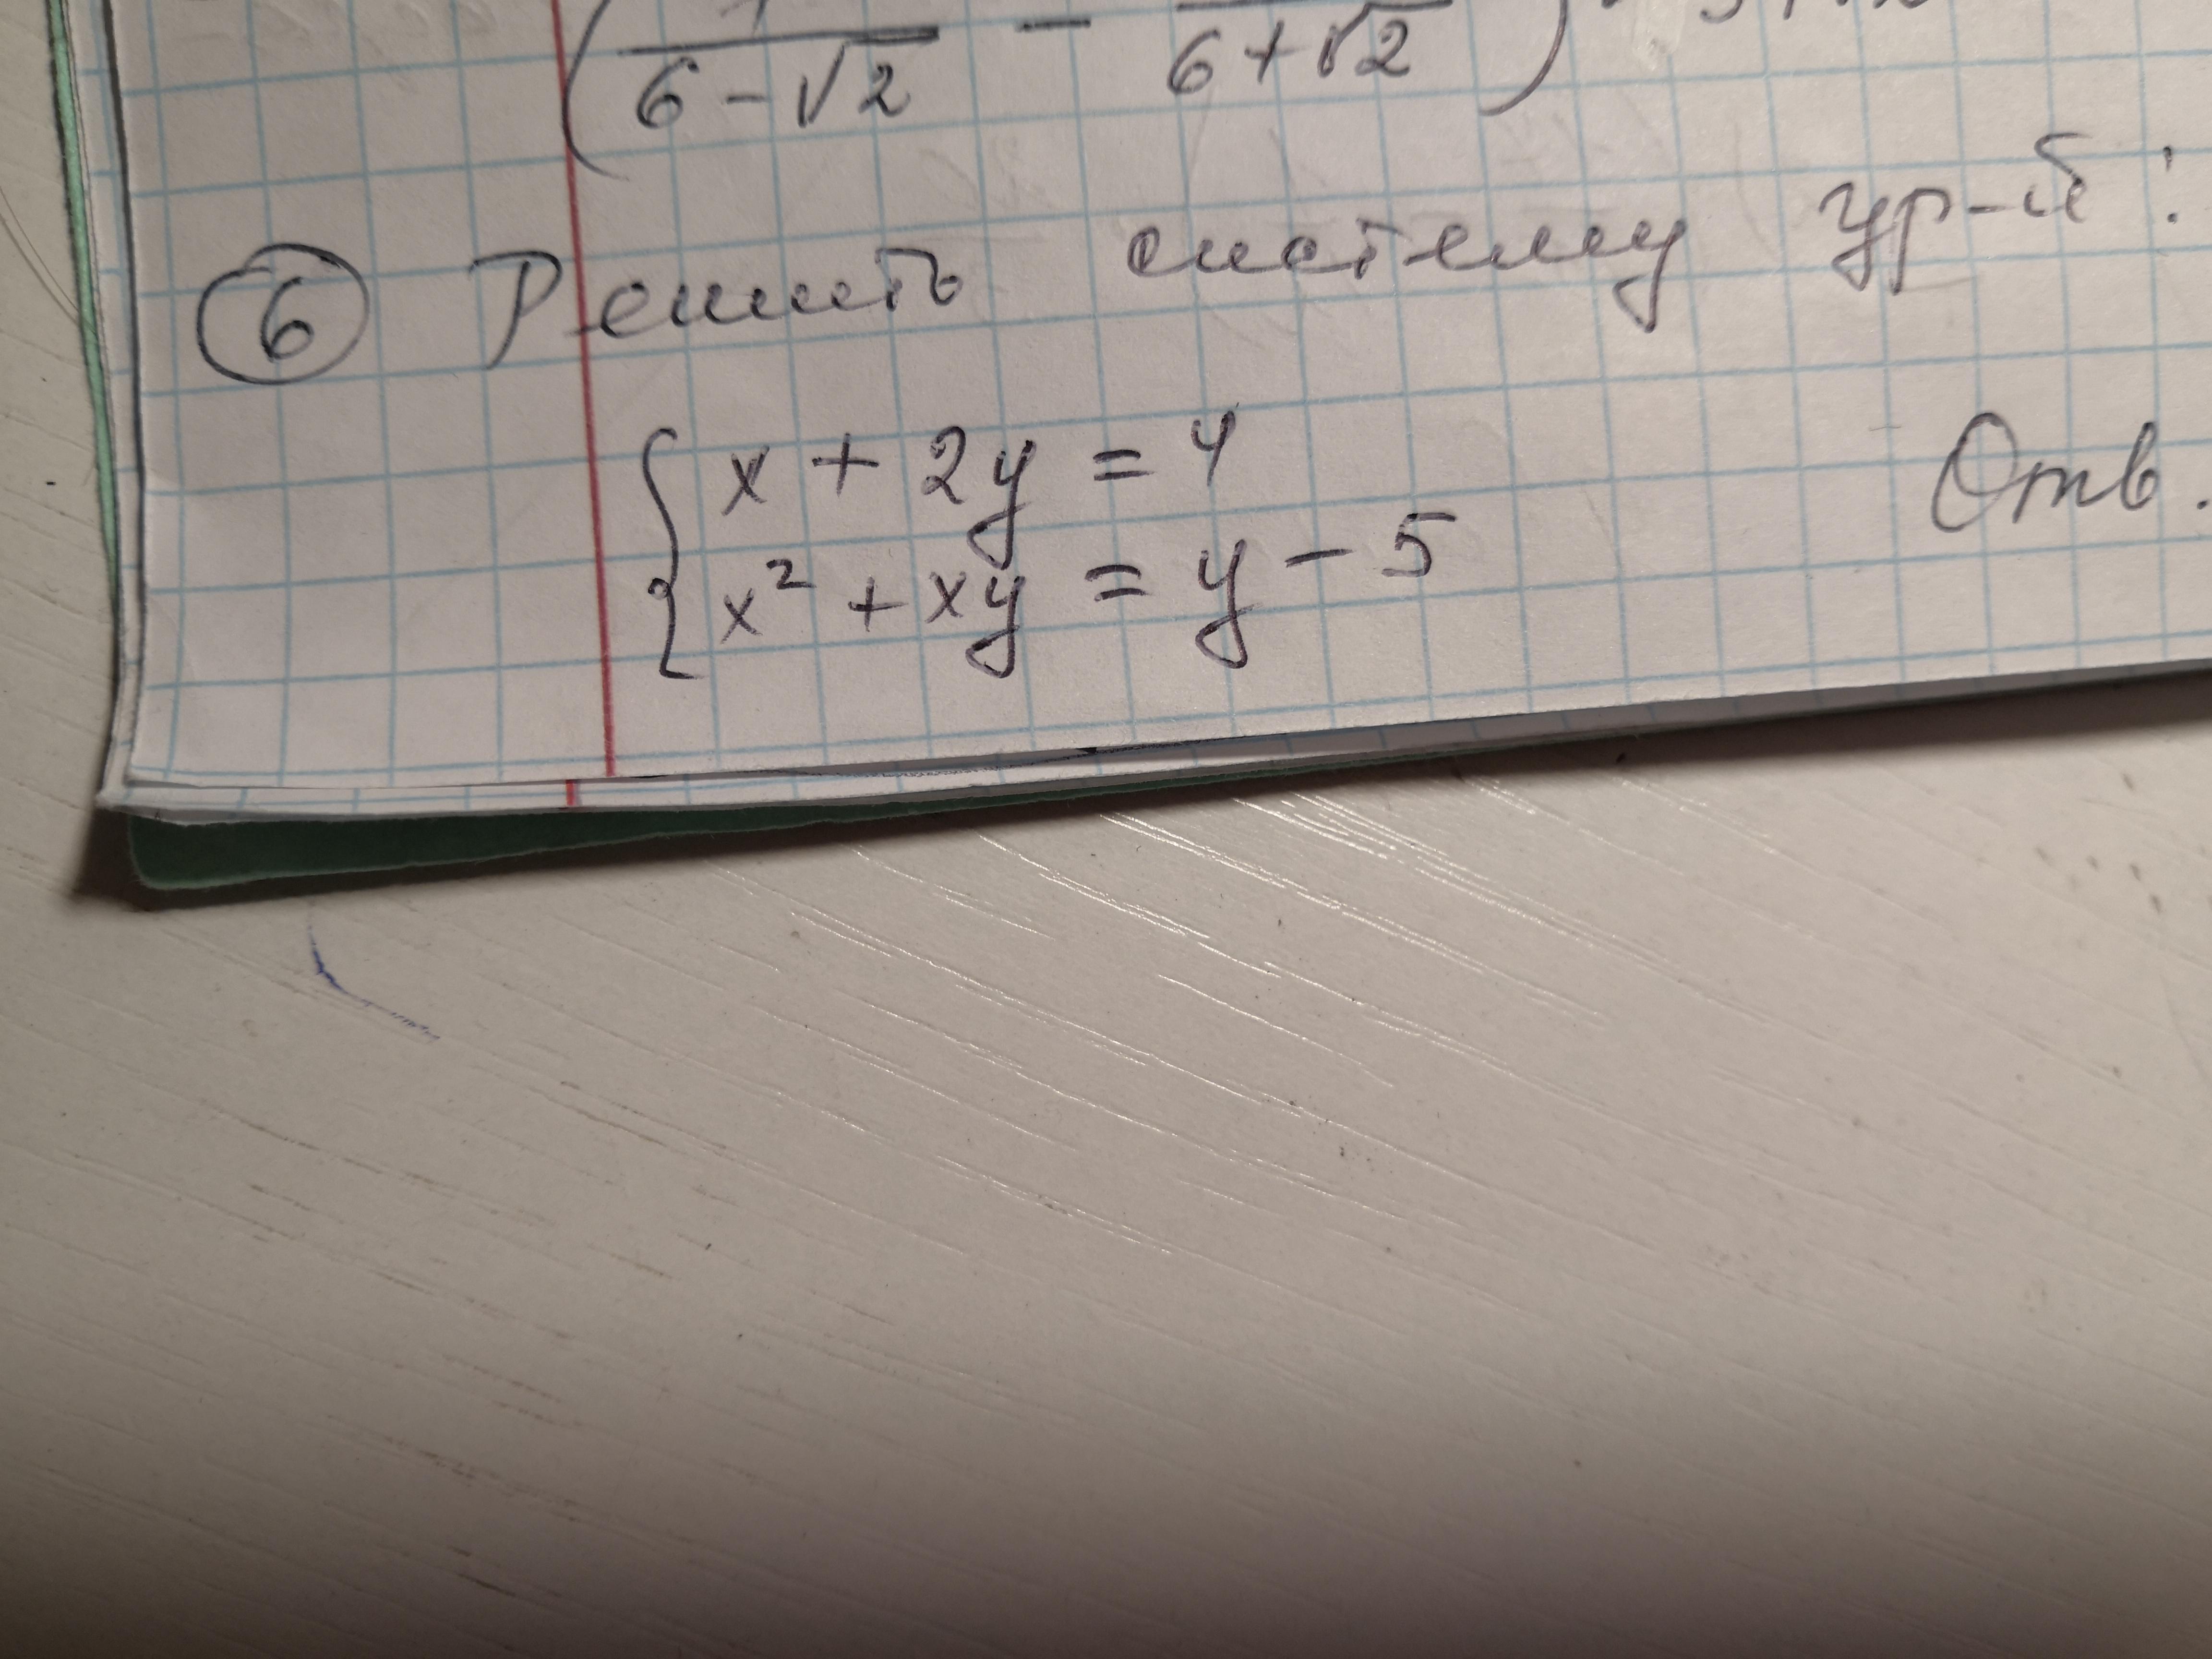 (1/(6-√2) - /(6+√2))
⑥ Решить систему ур-й:
{ x + 2y = 4
{ x² + xy = y - 5
Отв.